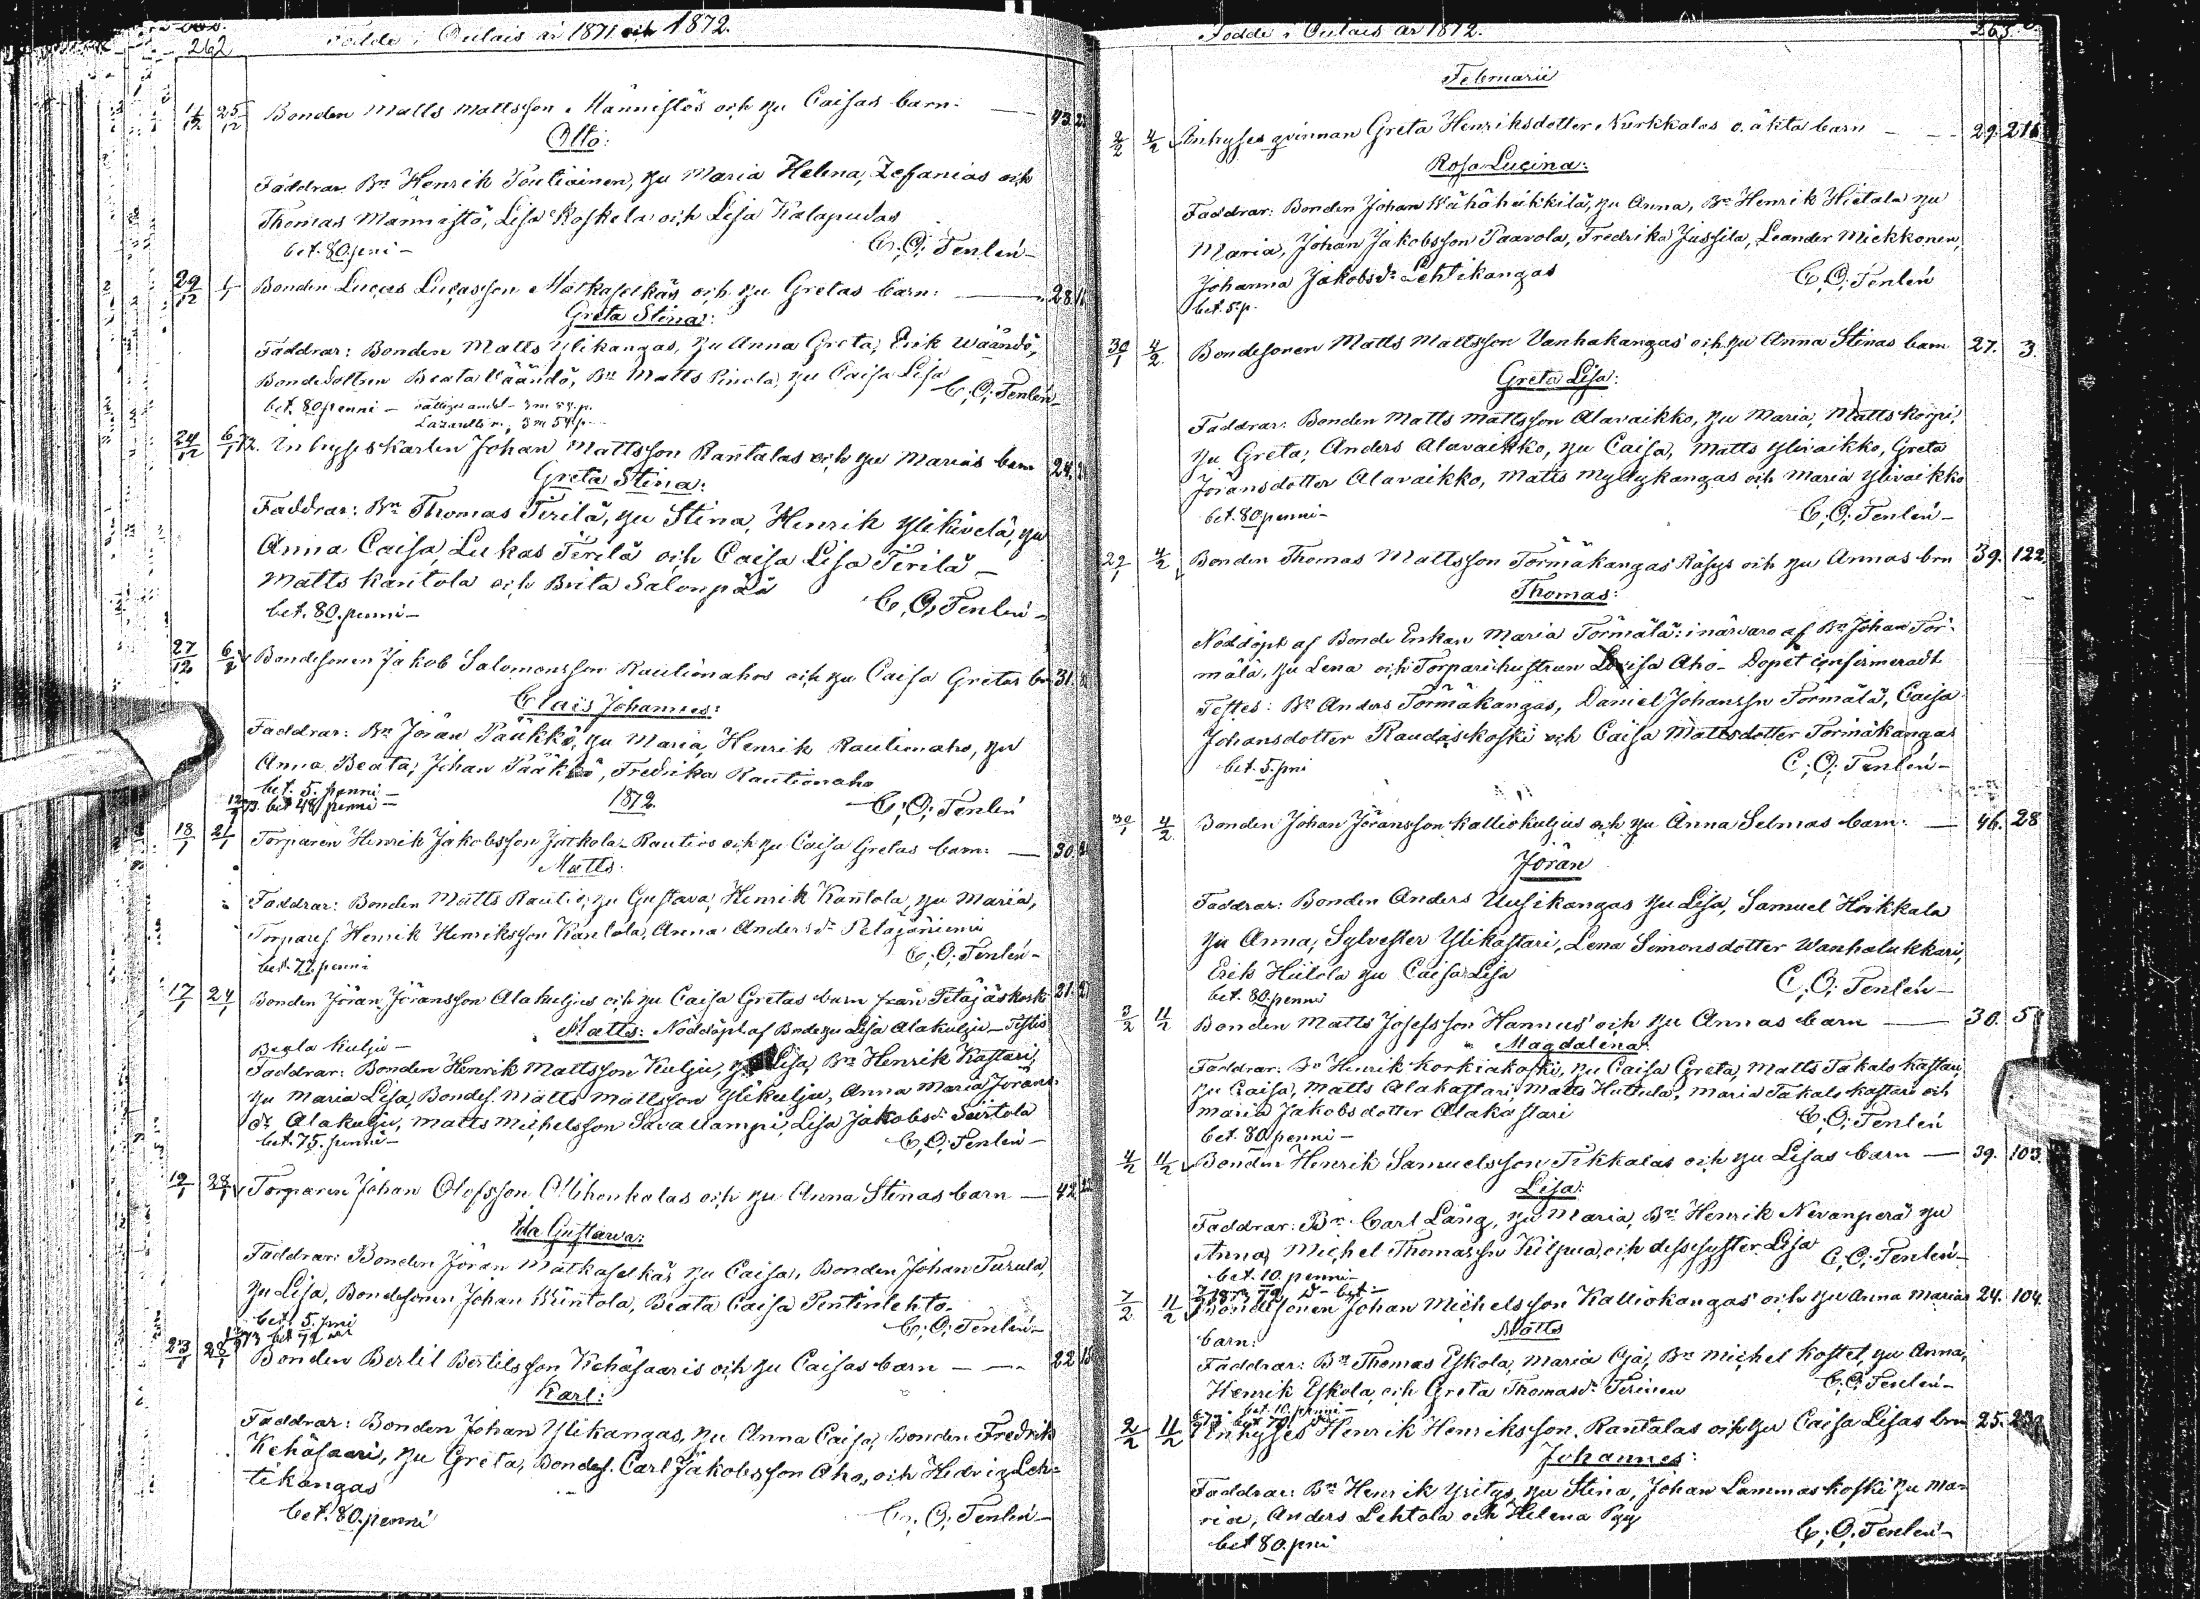 262
Födde i Oulais år 1871 och 1872.
14/12 25/12 Bonden Matts Mattsson Männistös och hu Caisas barn: 43.
Otto:
Faddrar Bn Henrik Poutiainen, hu Maria Helena, Zefanias och
Thomas Männistö, Lisa Koskela och Lisa Kalapudas
bet. 80 peni - C. O. Tenlén
29/12 1/1 Bonden Lucas Lucasson Matkaselkäs och hu Gretas barn: 28.
Greta Stina:
Faddrar: Bonden Matts Ylikangas, hu Anna Greta, Erik Wäändö,
Bondedottren Beata Väändö, Bn Matts Pirola, hu Caisa Lisa
C. O. Tenlén
bet. 80 penni - 3 m 54 p.
Lazarett 3 m 54 p.
24/12 6/1 72. Inhyseskarlen Johan Mattsson Rantalas och hu Marias barn 24.
Greta Stina:
Faddrar: Bn Thomas Tirilä, hu Stina, Henrik Ylikivelä, hu
Anna Caisa, Lukas Tirilä och Caisa Lisa Tirilä -
Matts Kantola och Brita Salonpää
bet. 80 penni - C. O. Tenlén -
27/12 6/2 Bondesonen Jakob Salomonsson Rautionahos och hu Caisa Gretas bn 31.
Clais Johannes:
Faddrar: Bn Jöran Pääkkö, hu Maria, Henrik Rautionaho, hu
Anna Beata, Johan Pääkkö, Fredrika Rautionaho
bet. 5. penni -
73. bet 48 penni - 1872. C. O. Tenlén
18/1 21/1 Torparen Henrik Jakobsson Jutkola-Rautios och hu Caisa Gretas barn: 30.
Matts:
Faddrar: Bonden Matts Rautio, hu Gustava, Henrik Kantola, hu Maria,
Torpares. Henrik Henriksson Kantola, Anna Andersdr Petäjäniemi
bet. 77. penni C. O. Tenlén -
17/1 24/1 Bonden Jöran Jöransson Alakuljus och hu Caisa Gretas barn från Petäjäskoski 21.
Matts: Nöddöpt af Bonde hu Lisa Alakulju - Testis
Beata Kulju -
Faddrar: Bonden Henrik Mattsson Kulju, hu Lisa, Bn Henrik Kastari,
hu Maria Lisa, Bondes. Matts Mattsson Ylikulju, Anna Maria Jörans-
dr Alakulju, Matts Michelsson Savalampi, Lisa Jakobsdr Siirtola
bet. 75. penni - C. O. Tenlén -
19/1 28/1 Torparen Johan Olofsson Alihonkalas och hu Anna Stinas barn 42.
Ida Gustawa:
Faddrar: Bonden Jöran Matkaselkäs hu Caisa, Bonden Johan Turula,
hu Lisa, Bondesonen Johan Wiintola, Beata Caisa Pentinlehto.
bet 5. pni
73 bet 72 C. O. Tenlén -
23/1 28/1 Bonden Bertil Bertilsson Kehäsaaris och hu Caisas barn 22
Karl:
Faddrar: Bonden Johan Ylikangas, hu Anna Caisa, Bonden Fredrik
Kehäsaari, hu Greta, Bondes. Carl Jakobsson Aho, och Hedvig Leh-
tikangas
bet. 80. penni C. O. Tenlén -
Födde i Oulais år 1872. 263
Februarii
2/2 4/2 Inhyses qvinnan Greta Henriksdotter Nurkkalas o. äkta barn 29. 216
Rosa Lucina:
Faddrar: Bonden Johan Vähähäkkilä, hu Anna, Bn Henrik Hietala hu
Maria, Johan Jakobsson Paavola, Fredrika Jussila, Leander Miekkonen,
Johanna Jakobsdr Lehtikangas C. O. Tenlén
bet. 5 p.
30/1 4/2 Bondesonen Matts Mattsson Vanhakangas och hu Anna Stinas barn 27. 3.
Greta Lisa:
Faddrar: Bonden Matts Mattsson Alavaikko, hu Maria, Matts Korpi,
hu Greta, Anders Alavaikko, hu Caisa, Matts Ylivaikko, Greta
Jöransdotter Alavaikko, Matts Myllykangas och Maria Ylivaikko
bet. 80 penni - C. O. Tenlén -
29/1 4/2 Bonden Thomas Mattsson Törmäkangas Räsys och hu Annas brn 39. 122
Thomas:
Nöddöpt af Bonde Enkan Maria Törmälä: i närvaro af Bn Johan Tör-
mälä, hu Lena och Torparehustrun Lovisa Aho - Dopet confirmeradt
Testes: Bn Anders Törmäkangas, Daniel Johansson Törmälä, Caisa
Johansdotter Raudaskoski och Caisa Mattsdotter Törmäkangas
bet. 5. pni C. O. Tenlén -
30/1 4/2 Bonden Johan Jöransson Kalliokuljus och hu Anna Selmas barn: 46. 28
Jöran
Faddrar: Bonden Anders Uusikangas hu Lisa, Samuel Hoikkala
hu Anna, Sylvester Ylikastari, Lena Simonsdotter Wanhalukkari,
Erik Hiitola hu Caisa Lisa
bet. 80 penni C. O. Tenlén -
3/2 11/2 Bonden Matts Josefsson Hannus och hu Annas barn 30. 5
Magdalena:
Faddrar: Bn Henrik Korkiakoski, hu Caisa Greta, Matts Takalo Kastari,
hu Caisa, Matts Alakastari, Matts Huttula, Maria Takalo Kastari och
Maria Jakobsdotter Alakastari C. O. Tenlén
bet. 80 penni -
4/2 11/2 Bonden Henrik Samuelsson Tikkalas och hu Lisas barn 39. 103
Lisa:
Faddrar: Bn Carl Lång, hu Maria, Bn Henrik Nevanperä hu
Anna, Michel Thomasson Kilpua, och dess syster Lisa C. O. Tenlén -
bet. 10. penni -
7/2 11/2 Bondesonen Johan Michelsson Kalliokangas och hu Anna Marias 24. 104
barn: Matts
Faddrar: Bn Thomas Eskola, Maria Oja, Bn Michel Kostet, hu Anna,
Henrik Eskola, och Greta Thomasdr Tirinen C. O. Tenlén -
bet. 10. penni -
2/2 11/2 Inhyses Henrik Henriksson Rantalas och hu Caisa Lisas brn 25.
Johannes:
Faddrar: Bn Henrik Yritys, hu Stina, Johan Lammaskoski hu Ma-
ria, Anders Lehtola och Helena Pyy
bet 80. pni C. O. Tenlén -